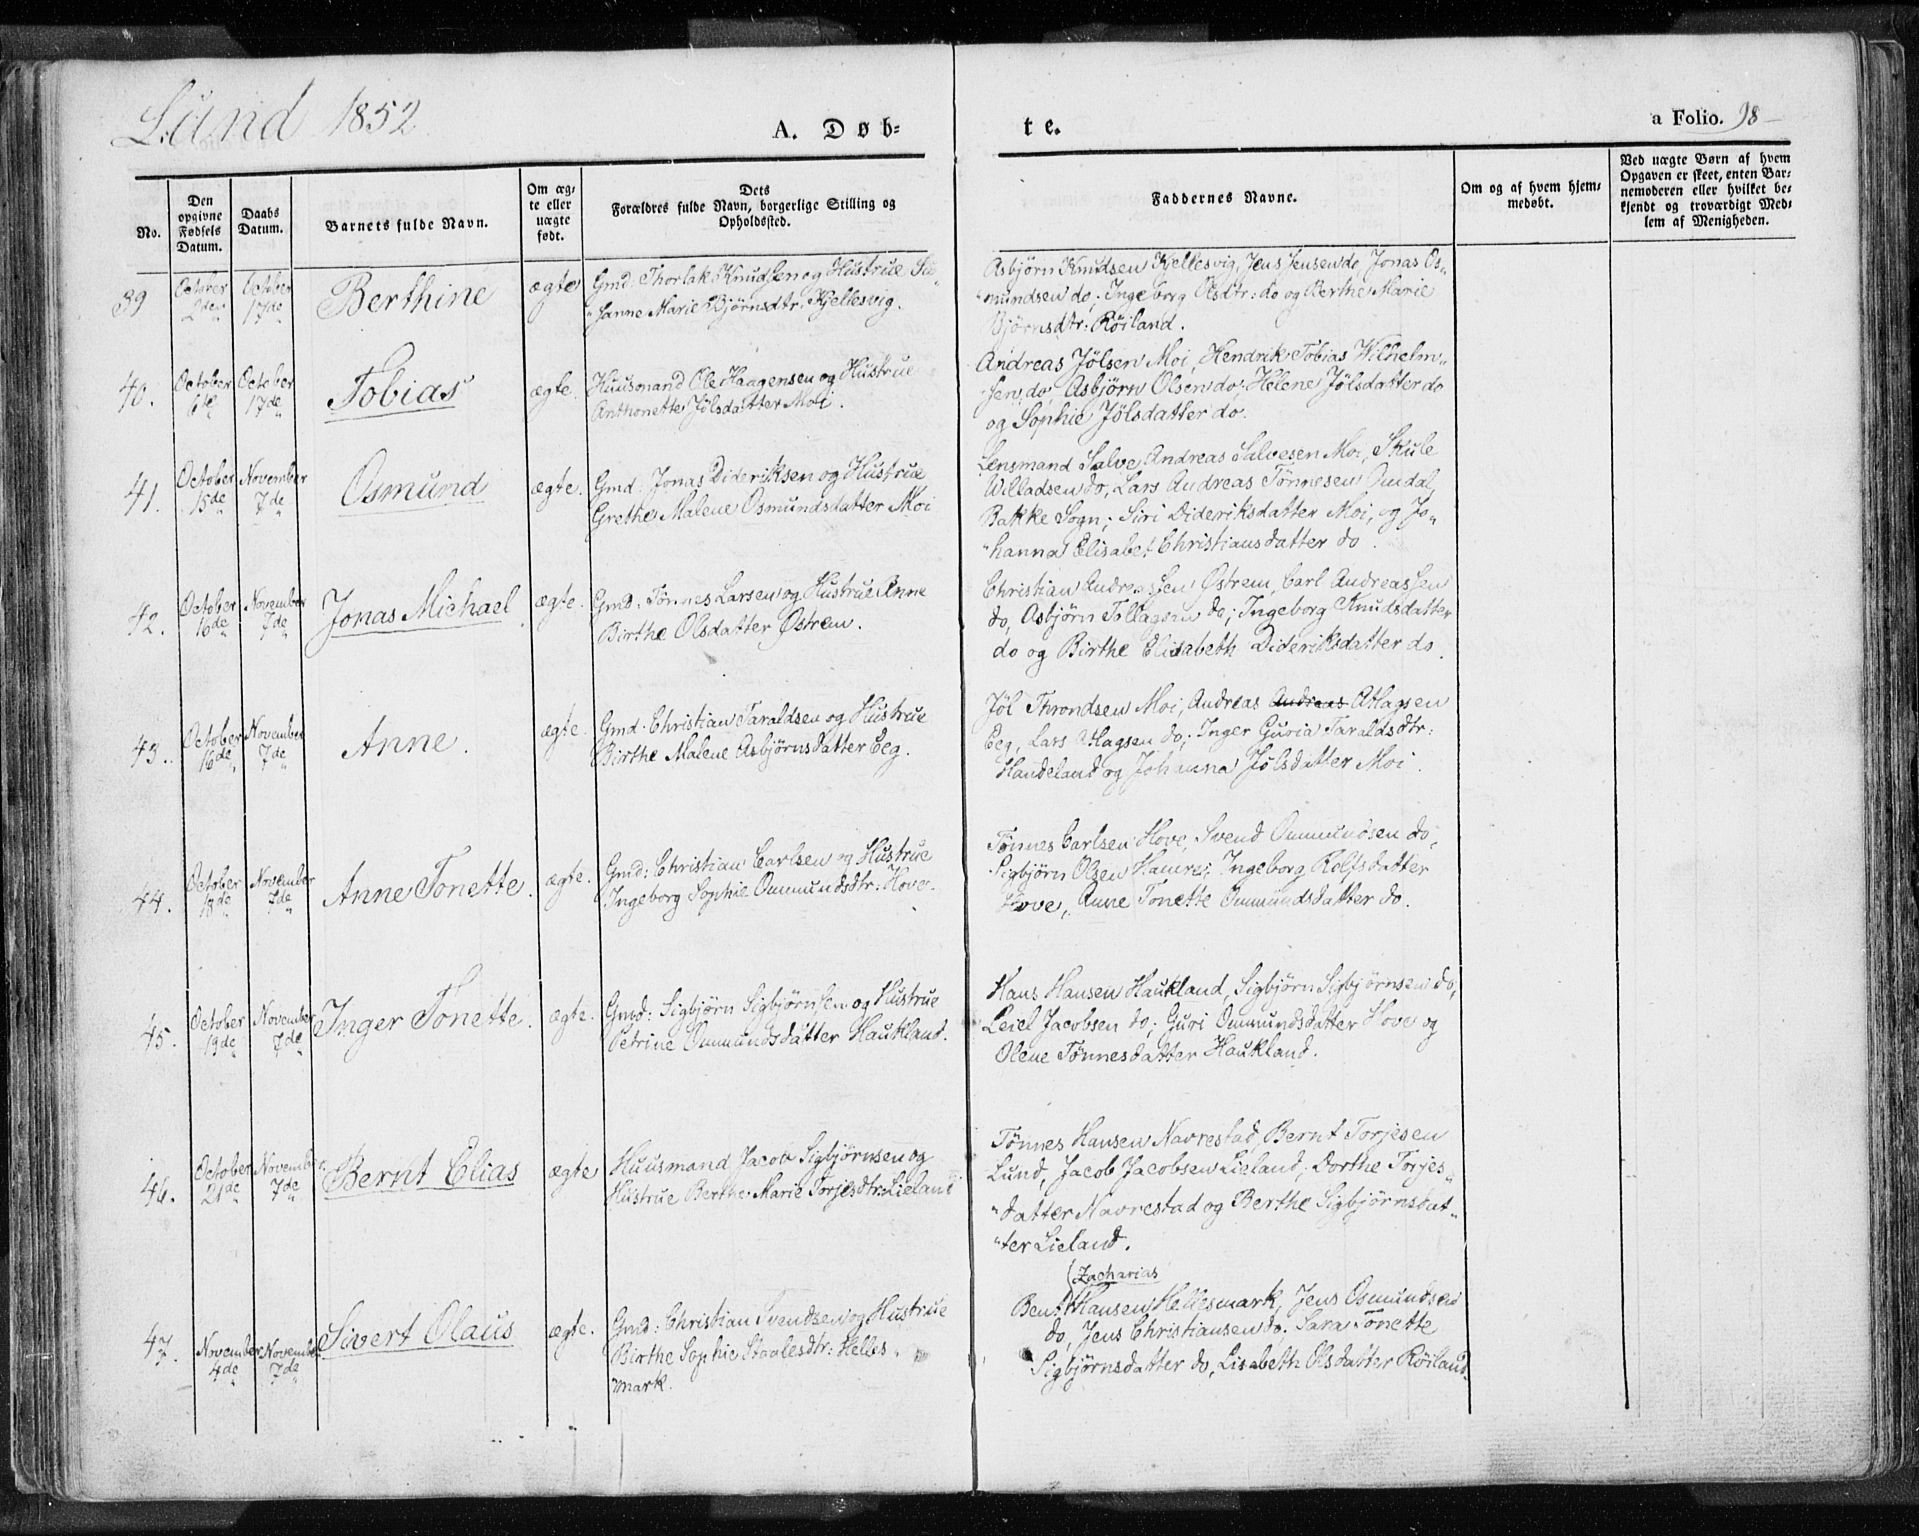 Lund 1852
A. Døb-
te.
a Folio. 98
No.
Den
opgivne
Fødsels
Datum.
Daabs
Datum.
Barnets fulde Navn.
Om æg-
te eller
uægte
født.
Dets
Forældres fulde Navn, borgerlige Stilling og
Opholdssted.
Faddernes Navne.
Om og af hvem hjem-
medøbt.
Ved uægte Børn af hvem
Opgaven er skeet, enten Bar-
nemoderen eller hvilket be-
kjendt og troværdigt Med-
lem af Menigheden.
39
October
2den
October
17de
Berthine
ægte
Gmd. Thorlak Knudsen og Hustrue Su„
„sanne Marie Bjørnsdtr. Kjellesvig.
Asbjørn Knudsen Kjellesvig, Jens Jensen do, Jonas Os„
„mundsen do; Ingeborg Olsdtr: do og Berthe Marie
Bjørnsdtr: Röiland.
40.
October
6te
October
17de
Tobias
ægte.
Huusmand Ole Haagensen og Hustrue
Anthonette Jölsdatter Moi.
Andreas Jölsen Moi, Hendrik Tobias Wilhelm„
sen do, Asbjörn Olsen do; Helene Jölsdatter do
og Sophie Jölsdatter do.
41.
October
15de
November
7de
Osmund
ægte.
Gmd: Jonas Dideriksen og Hustrue
Grethe Malene Osmundsdatter Moi
Lensmand Salve Andreas Salvesen Moi, Skule
Willadsen do, Lars Andreas Tönnesen Omdal,
Bakke Sogn; Siri Dideriksdatter Moi, og Jo„
„hanna Elisabet Christiansdatter do.
42.
October
16de
November
7de
Jonas Michael
ægte.
Gmd: Tönnes Larsen og Hustrue Anne
Birthe Olsdatter Østrem.
Christian Andreassen Østrem, Carl Andreassen
do, Asbjörn Tollagsen do; Ingeborg Knudsdatter
do og Birthe Elisabeth Dideriksdatter do.
43.
October
16de
November
7de
Anne.
ægte.
Gmd: Christian Taraldsen og Hustrue
Birthe Malene Asbjørnsdatter Eeg.
Jöl Throndsen Moi, Andreas Andreas Atlagsen
Eeg, Lars Atlagsen do; Inger Guria Taraldsdtr:
Handeland og Johanna Jölsdatter Moi.
44.
October
18de
November
7de
Anne Tonette.
ægte.
Gmd: Christian Carlsen og Hustrue
Ingeborg Sophie Ommundsdtr: Hove.
Tönnes Carlsen Hove, Svend Ommundsen do,
Sigbjörn Olsen Hamre; Ingeborg Rolfsdatter
Hove, Anne Tonette Ommundsdatter do.
45.
October
19de
November
7de
Inger Tonette.
ægte.
Gmd: Sigbjörn Sigbjörnsen og Hustrue
Petrine Ommundsdatter Haukland.
Hans Hansen Haukland, Sigbjörn Sigbjörnsen do,
Leiel Jacobsen do; Guri Ommundsdatter Hove og
Olene Tönnesdatter Haukland.
46.
October
21de
November
7de
Bernt Elias
ægte
Huusmand Jacob Sigbjörnsen og
Hustrue Berthe Marie Torjesdtr: Lieland
Tönnes Hansen Navrestad, Bernt Torjesen
Lund, Jacob Jacobsen Lieland; Dorthe Torjes„
„datter Navrestad og Berthe Sigbjörnsdat„
„ter Lieland.
47.
November
4de
November
7de
Sivert Olaus
ægte.
Gmd: Christian Svendsen og Hustrue
Birthe Sophie Staalesdtr: Helles„
mark.
Zacharias
Bent Hansen Hellesmark, Jens Osmundsen
do, Jens Christiansen do; Sara Tonette
Sigbjörnsdatter do, Lisabeth Olsdatter Röiland.